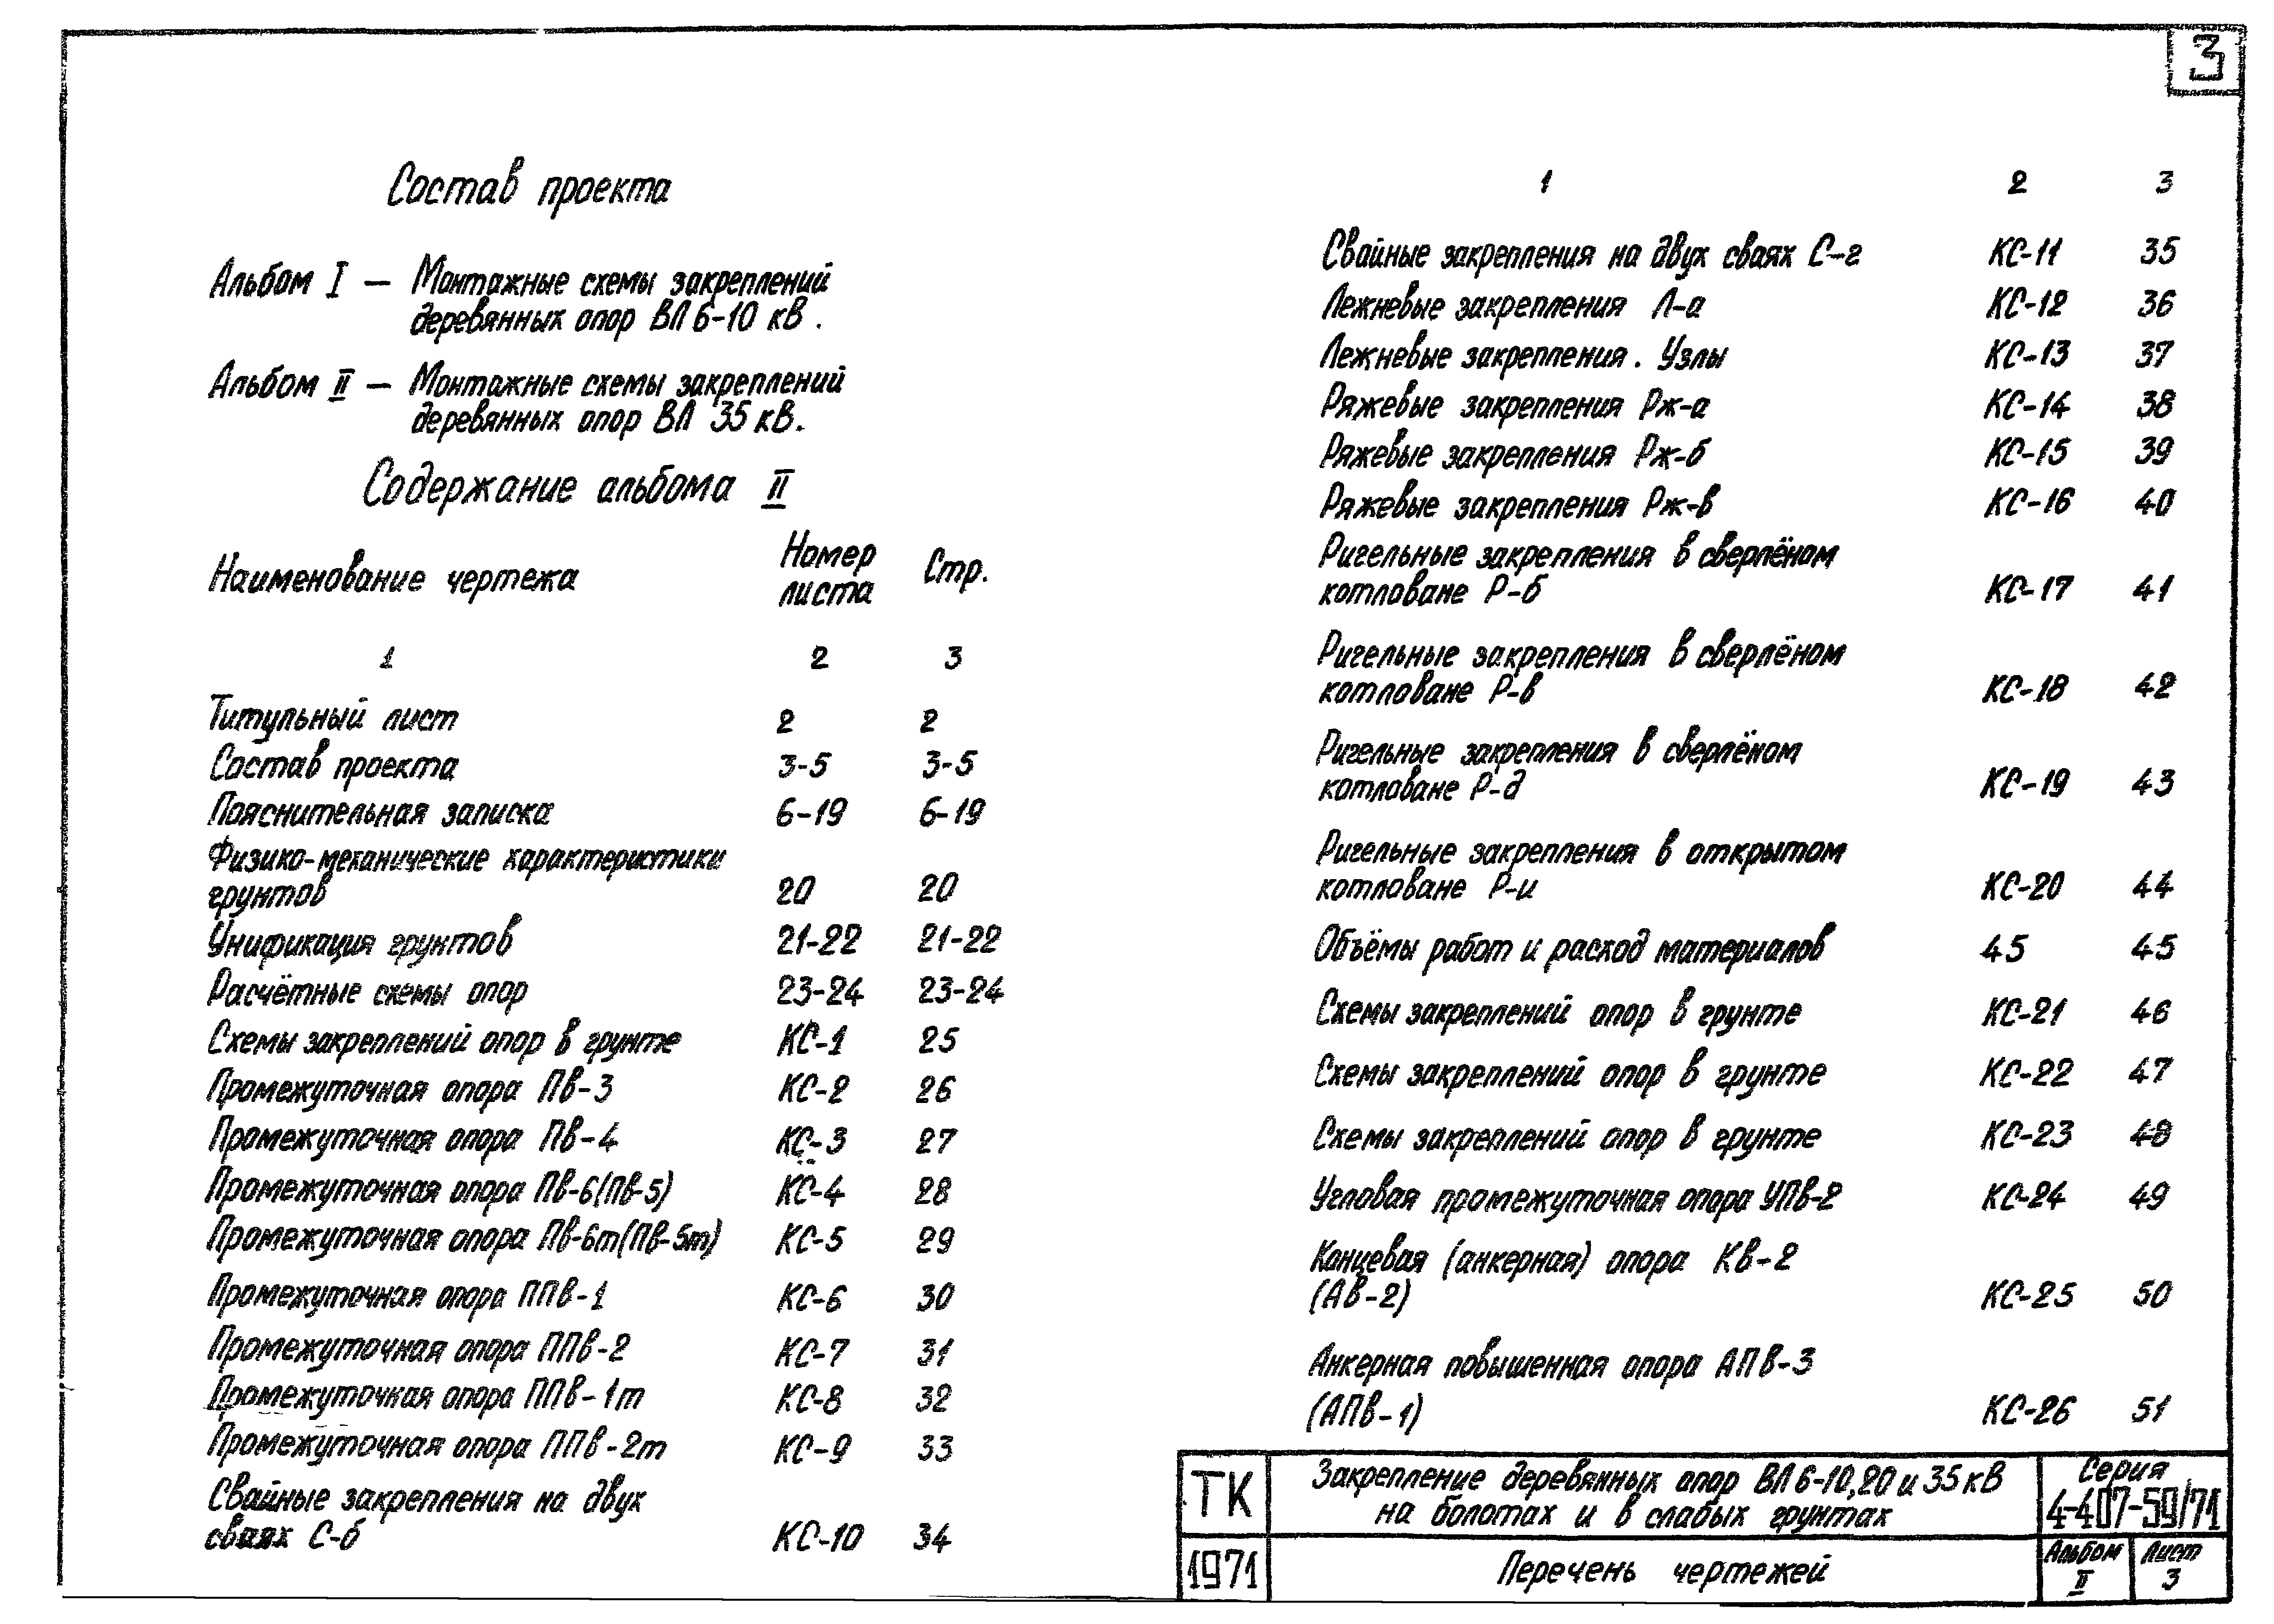 3
Состав проекта
Альбом I — Монтажные схемы закреплений
деревянных опор ВЛ 6-10 кВ.
Альбом II — Монтажные схемы закреплений
деревянных опор ВЛ 35 кВ.
Содержание альбома II
Наименование чертежа Номер листа Стр.
1 2 3
Титульный лист 2 2
Состав проекта 3-5 3-5
Пояснительная записка 6-19 6-19
Физико-механические характеристики
грунтов 20 20
Унификация грунтов 21-22 21-22
Расчётные схемы опор 23-24 23-24
Схемы закреплений опор в грунте КС-1 25
Промежуточная опора ПВ-3 КС-2 26
Промежуточная опора ПВ-4 КС-3 27
Промежуточная опора ПВ-6(ПВ-5) КС-4 28
Промежуточная опора ПВ-6т(ПВ-5т) КС-5 29
Промежуточная опора ППВ-1 КС-6 30
Промежуточная опора ППВ-2 КС-7 31
Промежуточная опора ППВ-1т КС-8 32
Промежуточная опора ППВ-2т КС-9 33
Свайные закрепления на двух
сваях С-б КС-10 34
1 2 3
Свайные закрепления на двух сваях С-г КС-11 35
Лежневые закрепления Л-а КС-12 36
Лежневые закрепления. Узлы КС-13 37
Ряжевые закрепления Рж-а КС-14 38
Ряжевые закрепления Рж-б КС-15 39
Ряжевые закрепления Рж-в КС-16 40
Ригельные закрепления в сверлёном
котловане Р-б КС-17 41
Ригельные закрепления в сверлёном
котловане Р-в КС-18 42
Ригельные закрепления в сверлёном
котловане Р-д КС-19 43
Ригельные закрепления в открытом
котловане Р-и КС-20 44
Объёмы работ и расход материалов 45 45
Схемы закреплений опор в грунте КС-21 46
Схемы закреплений опор в грунте КС-22 47
Схемы закреплений опор в грунте КС-23 48
Угловая промежуточная опора УПВ-2 КС-24 49
Концевая (анкерная) опора КВ-2
(АВ-2) КС-25 50
Анкерная повышенная опора АПВ-3
(АПВ-1) КС-26 51
ТК
Закрепление деревянных опор ВЛ 6-10,20 и 35 кВ
на болотах и в слабых грунтах
Серия
4-407-59/71
1971
Перечень чертежей
Альбом II
Лист 3